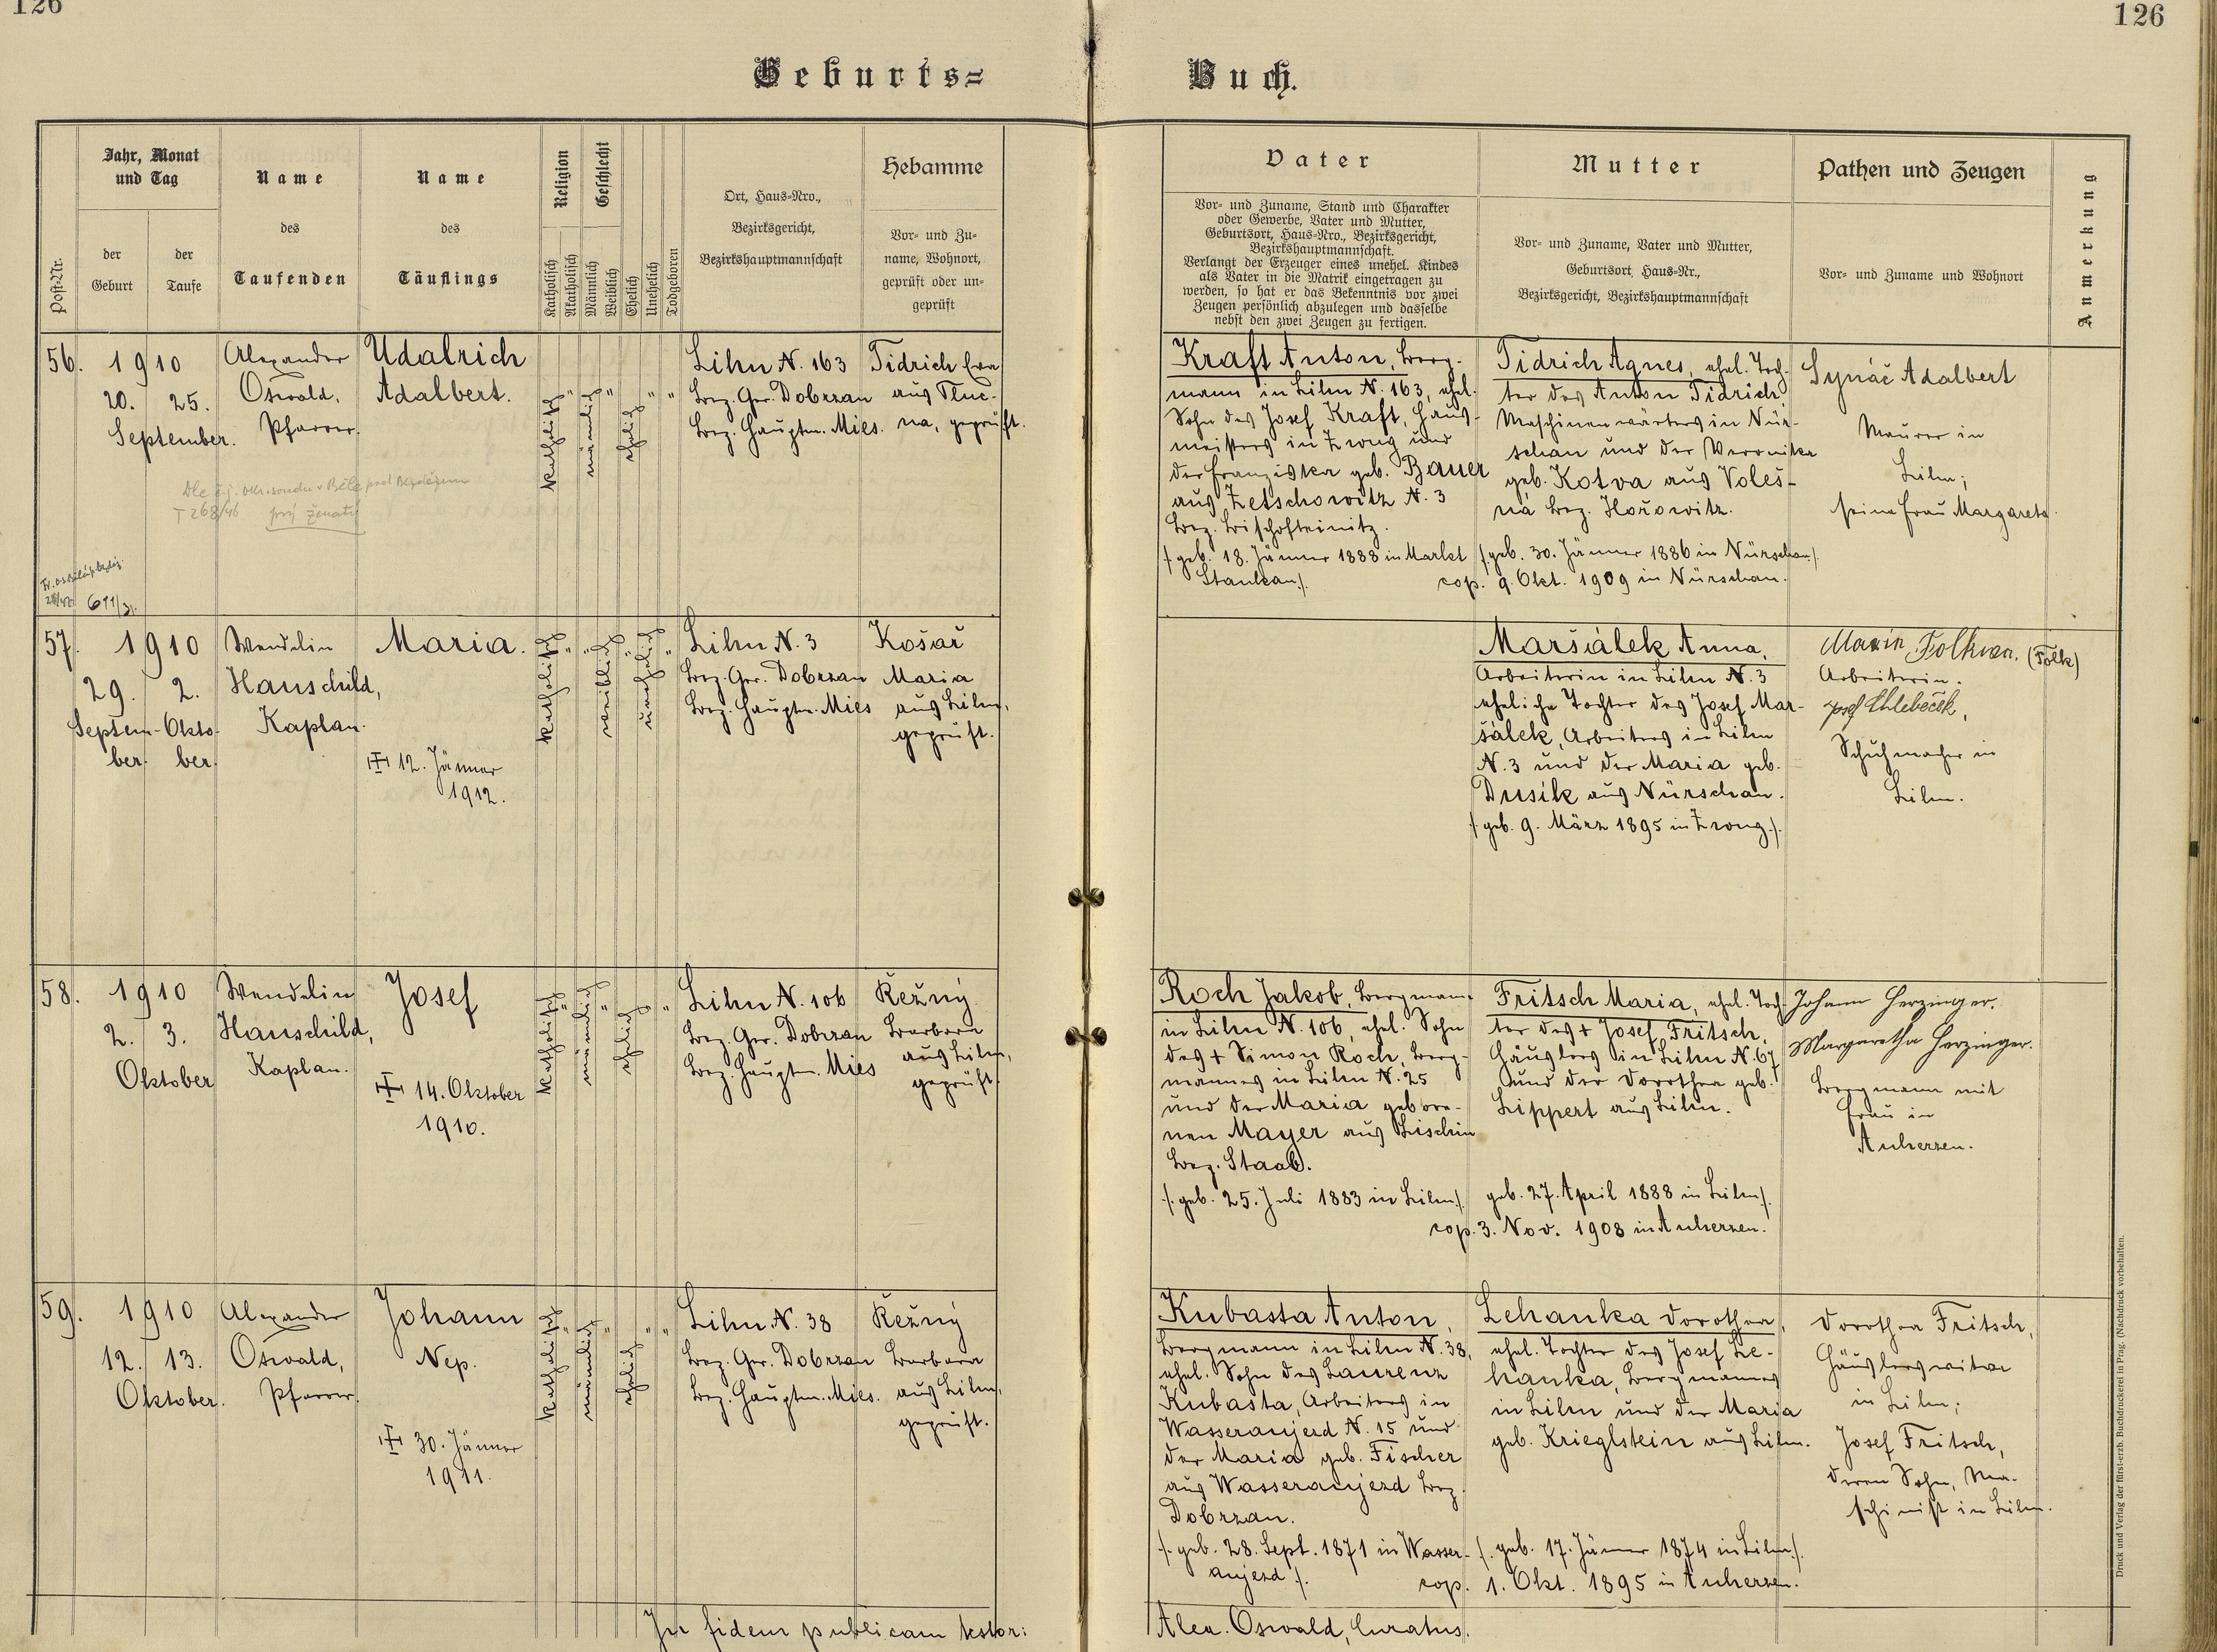 126
126
Geburts-
Buch.
Post-Nr.
Jahr, Monat
und Tag
der
Geburt
der
Taufe
Name
des
Taufenden
Name
des
Täuflings
Religion
Katholisch
Akatholisch
Geschlecht
Männlich
Weiblich
Ehelich
Unehelich
Todgeboren
Ort, Haus-Nro.,
Bezirksgericht,
Bezirkshauptmannschaft
Hebamme
Vor- und Zu-
name, Wohnort,
geprüft oder un-
geprüft
Vater
Vor- und Zuname, Stand und Charakter
oder Gewerbe, Vater und Mutter,
Geburtsort, Haus-Nro., Bezirksgericht,
Bezirkshauptmannschaft.
Verlangt der Erzeuger eines unehel. Kindes
als Vater in die Matrik eingetragen zu
werden, so hat er das Bekenntnis vor zwei
Zeugen persönlich abzulegen und dasselbe
nebst den zwei Zeugen zu fertigen.
Mutter
Vor- und Zuname, Vater und Mutter,
Geburtsort, Haus-Nr.,
Bezirksgericht, Bezirkshauptmannschaft
Pathen und Zeugen
Vor- und Zuname und Wohnort
Anmerkung
56.
1910
20. 25.
September.
Alexander
Oswald,
Pfarrer.
Udalrich
Adalbert.
katholisch
"
männlich
"
ehelich
"
"
Lihn N. 163
Bez. Ger. Dobrzan
Bez. Hauptm. Mies.
Tidrich Eva
aus Tluc-
na, geprüft.
Dle č.j. okr. soudu v Bělé pod Bezdězem
T 268/46 prý ženatý
611/31.
Kraft Anton, Berg-
mann in Lihn N. 163, ehel.
Sohn des Josef Kraft, Haus-
meisters in Zwug und
der Franziska geb. Bauer
aus Zetschowitz N. 3
Bez. Bischofteinitz.
/: geb. 18. Jänner 1883 in Markt
Stankau :/.
Tidrich Agnes, ehel. Toch-
ter des Anton Tidrich,
Maschinenwärters in Nür-
schan und der Veronika
geb. Kotva aus Voleš-
ná Bez. Hořowitz.
/: geb. 30. Jänner 1886 in Nürschan :/.
cop. 9. Okt. 1909 in Nürschan.
Synáč Adalbert
Maurer in
Lihn;
seine Frau Margareta.
57.
1910
29. 2.
Septem- Okto-
ber. ber.
Wendelin
Hauschild,
Kaplan.
Maria.
12. Jänner
1912.
katholisch
"
"
weiblich
"
unehelich
"
Lihn N. 3
Bez. Ger. Dobrzan
Bez. Hauptm. Mies
Košař
Maria
aus Lihn,
geprüft.
Maršálek Anna,
Arbeiterin in Lihn N. 3
eheliche Tochter des Josef Mar-
šálek, Arbeiters in Lihn
N. 3 und der Maria geb.
Dusík aus Nürschan.
/: geb. 9. März 1895 in Zwug :/.
(Folk)
Arbeiterin.
Josef Chlebeček,
Schuhmacher in
Lihn.
58.
1910
2. 3.
Oktober
Wendelin
Hauschild,
Kaplan.
Josef
14. Oktober
1910.
katholisch
"
männlich
"
ehelich
"
Lihn N. 106
Bez. Ger. Dobrzan
Bez. Hauptm. Mies
Řežný
Barbara
aus Lihn,
geprüft.
Roch Jakob, Bergmann
in Lihn N. 106, ehel. Sohn
des + Simon Roch, Berg-
mannes in Lihn N. 25
und der Maria gebore-
nen Mayer aus Lischin
Bez. Staab.
/: geb. 25. Juli 1883 in Lihn :/.
Fritsch Maria, ehel. Toch-
ter des + Josef Fritsch,
Häuslers in Lihn N. 67
und der Dorothea geb.
Lippert aus Lihn.
geb. 27. April 1888 in Lihn :/.
cop. 3. Nov. 1908 in Auherzen.
Johann Herzinger.
Margaretha Herzinger.
Bergmann mit
Frau in
Auherzen.
59.
1910
12. 13.
Oktober.
Alexander
Oswald,
Pfarrer.
Johann
Nep.
30. Jänner
1911.
katholisch
"
männlich
"
ehelich
"
"
Lihn N. 38
Bez. Ger. Dobrzan
Bez. Hauptm. Mies.
Řežný
Barbara
aus Lihn,
geprüft.
Kubasta Anton,
Bergmann in Lihn N. 38,
ehel. Sohn des Laurenz
Kubasta, Arbeiters in
Wasseraujezd N. 15 und
der Maria geb. Fischer
aus Wasseraujezd Bez.
Dobrzan.
/: geb. 28. Sept. 1871 in Wasser-
aujezd :/.
Lehanka Dorothea,
ehel. Tochter des Josef Le-
hanka, Bergmannes
in Lihn und der Maria
geb. Krieglstein aus Lihn.
/: geb. 17. Jänner 1874 in Lihn :/.
cop. 1. Okt. 1895 in Auherzen.
Dorothea Fritsch,
Häuslerswitwe
in Lihn;
Josef Fritsch,
deren Sohn, Ma-
schinist in Lihn.
In fidem publicam testor:
Alex. Oswald, Curatus.
Druck und Verlag der fürst-erzb. Buchdruckerei in Prag. (Nachdruck vorbehalten.